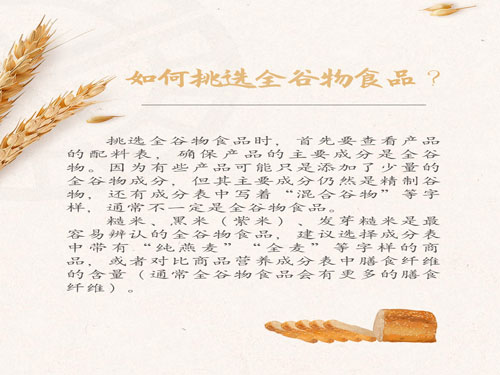 如何挑选全谷物食品？
挑选全谷物食品时，首先要查看产品
的配料表，确保产品的主要成分是全谷
物。因为有些产品可能只是添加了少量的
全谷物成分，但其主要成分仍然是精制谷
物，还有成分表中写着“混合谷物”等字
样，通常不一定是全谷物食品。
糙米、黑米（紫米）、发芽糙米是最
容易辨认的全谷物食品，建议选择成分表
中带有“纯燕麦”“全麦”等字样的商
品，或者对比商品营养成分表中膳食纤维
的含量（通常全谷物食品会有更多的膳食
纤维）。